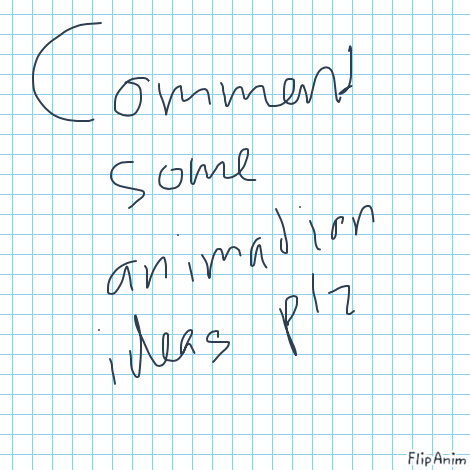 Comment
some
animation
ideas plz
FlipAnim